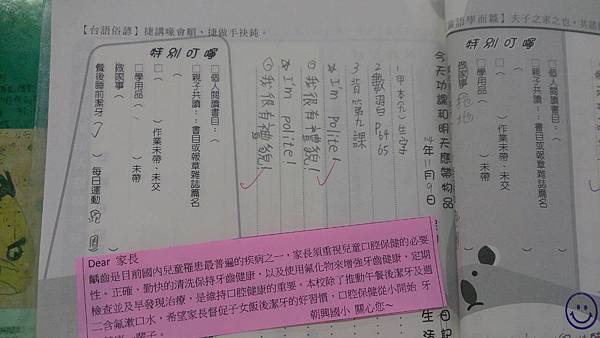 【台語俗諺】捷講喙會順、捷做手袂鈍。
論語學而篇】夫子之求之也，其諸
特別叮嚀
□個人閱讀書目：（
□親子共讀：：書目或報章雜誌篇名
（
□學用品（ ）未帶
（ ）作業未帶、未交
做家事（
餐後睡前潔牙（✓）每日運動
今天功課和明天應帶物品
11月9日
1甲本(六)生字
2數習P64 65
3背第九課
☆I'm polite!
①我很有禮貌!
☆I'm polite!
①我很有禮貌!
特別叮嚀
□個人閱讀書目：（
□親子共讀：：書目或報章雜誌篇名
（
□學用品（ ）未帶
（ ）作業未帶、未交
做家事（拖地
日記
生活
Dear 家長
齲齒是目前國內兒童罹患最普遍的疾病之一，家長須重視兒童口腔保健的必要
性。正確，勤快的清洗保持牙齒健康，以及使用氟化物來增強牙齒健康，定期
檢查並及早發現治療，是維持口腔健康的重要。本校除了推動午餐後潔牙及週
二含氟漱口水，希望家長督促子女飯後潔牙的好習慣，口腔保健從小開始 牙
一輩子。
朝興國小 關心您～